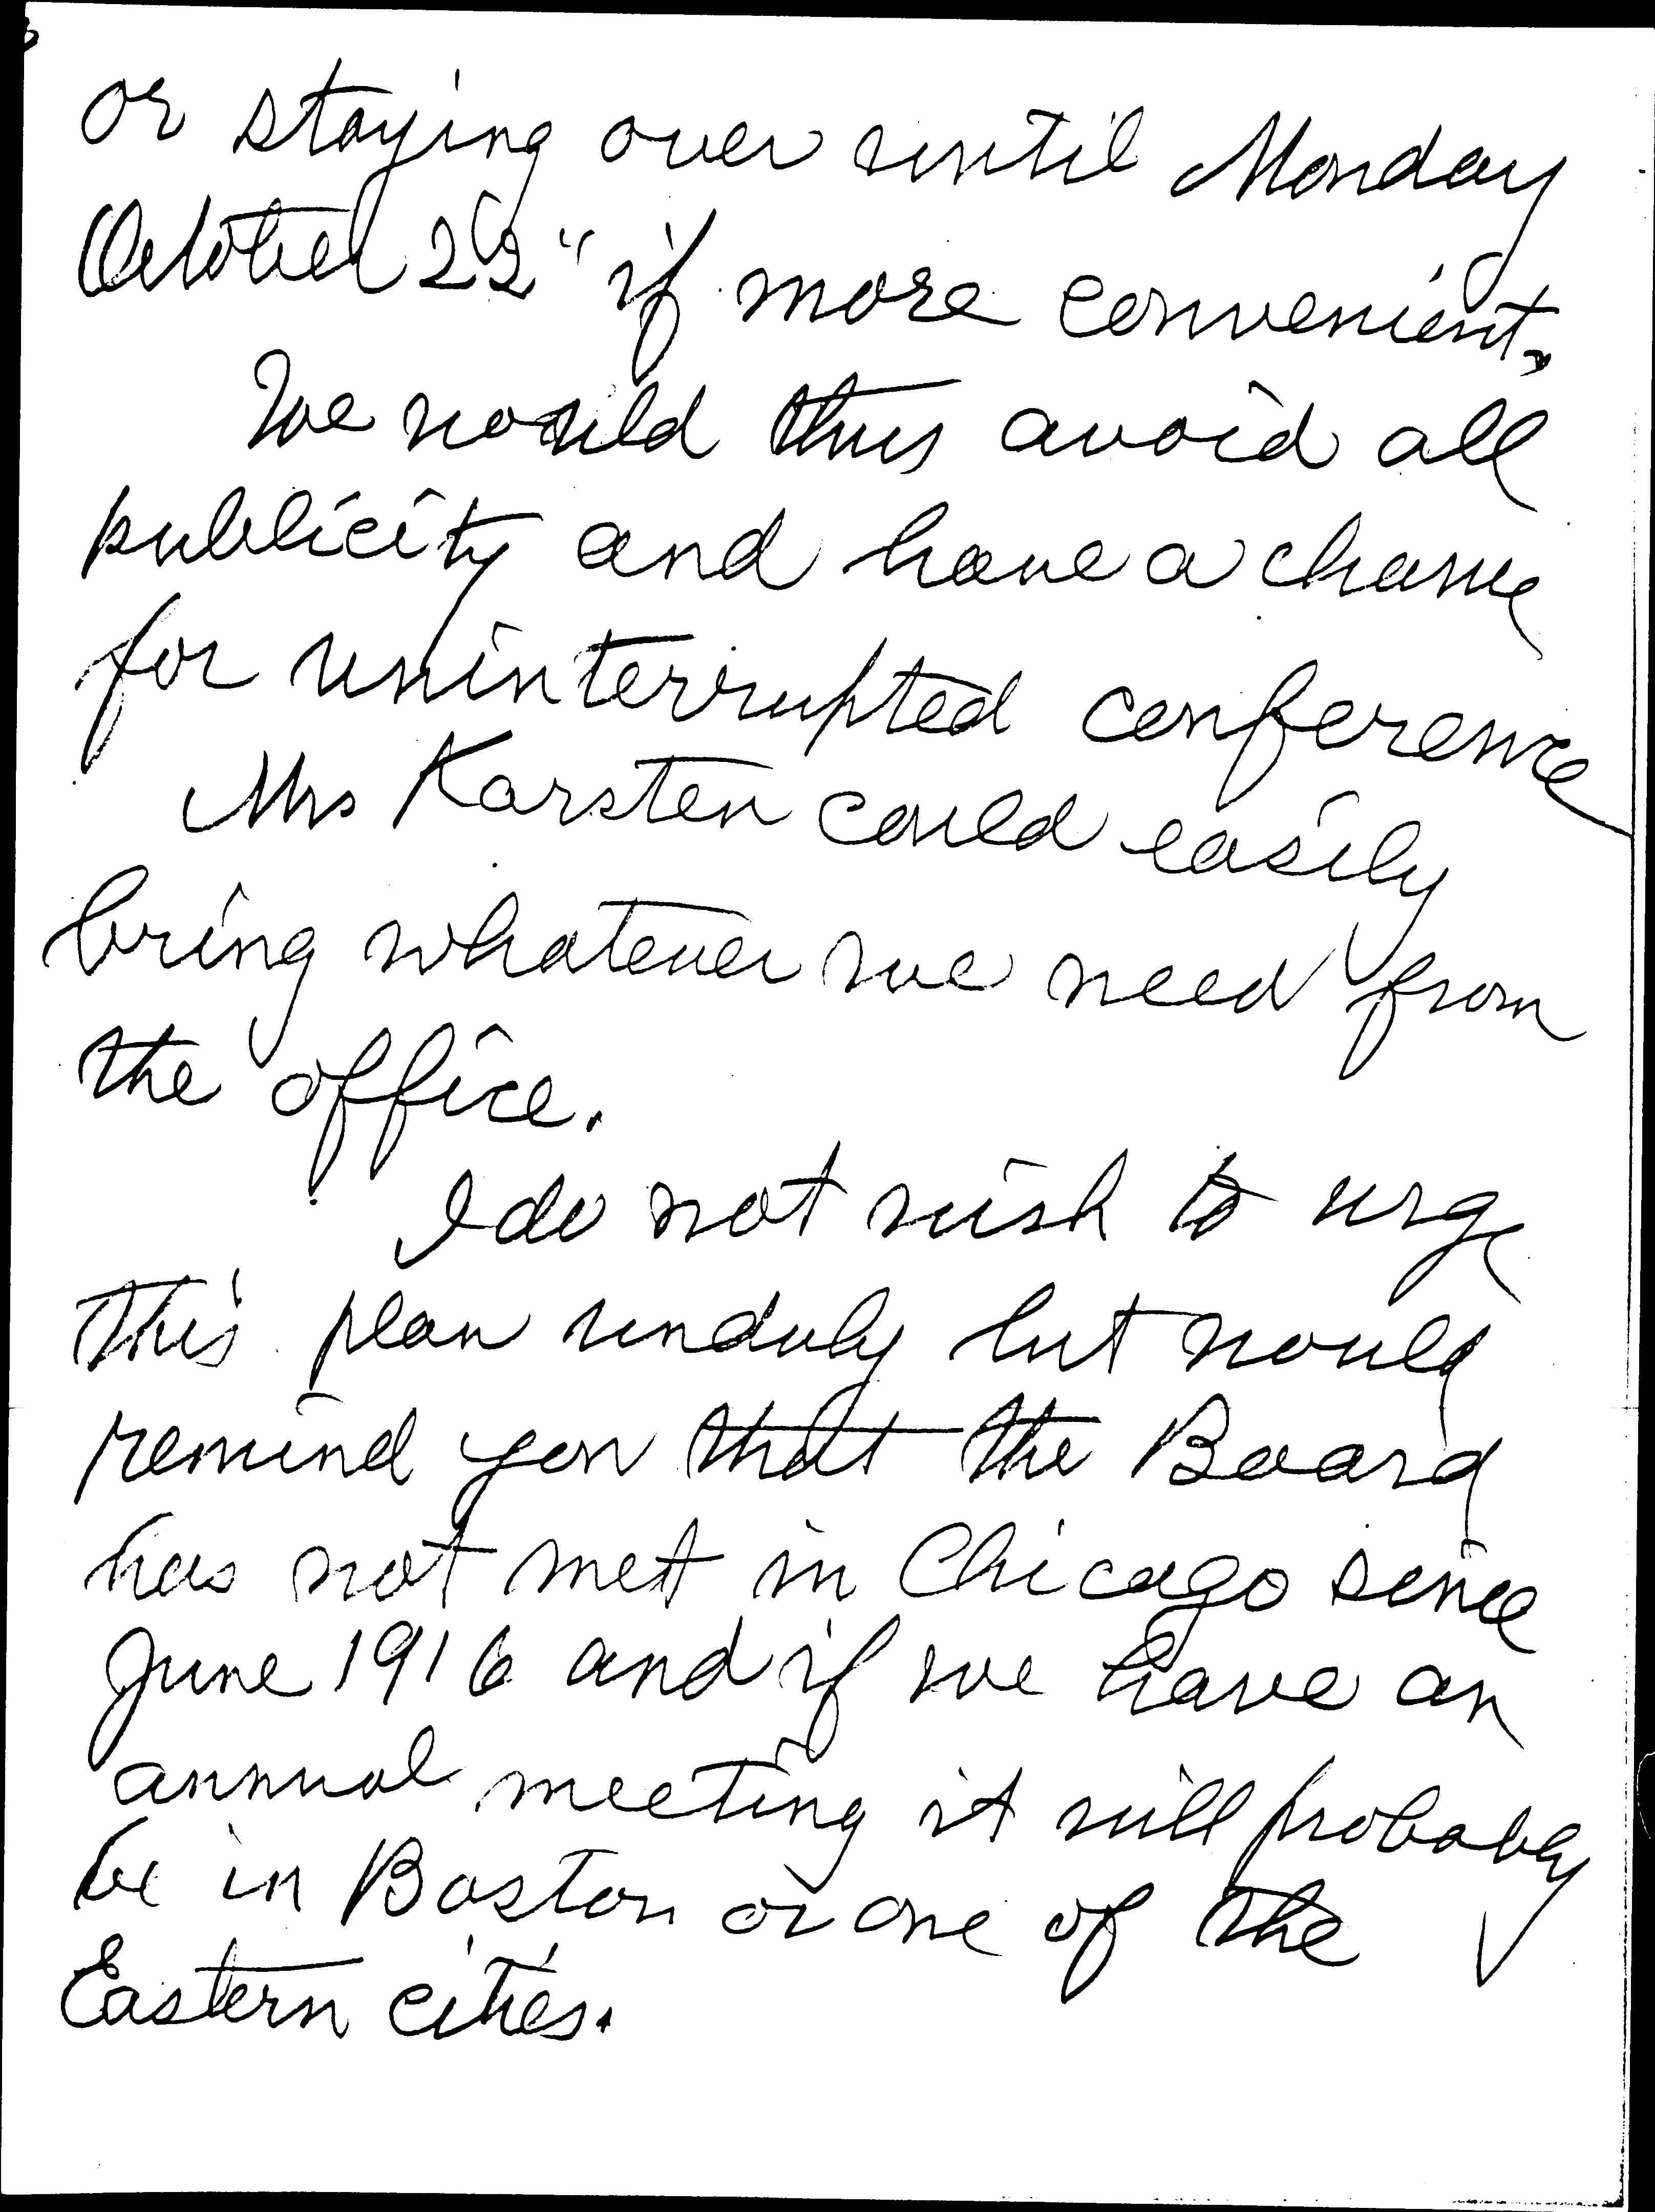 or staying over until Monday
October 22" if more convenient.
We would thus avoid all
publicity and have a chance
for uninterrupted conference
Mrs Karsten could easily
bring whatever we need from
the office.
I do not wish to urge
this plan unduly but would
remind you that the Board
has not met in Chicago since
June 1916 and if we have an
annual meeting it will probably
be in Boston or one of the
Eastern cities.